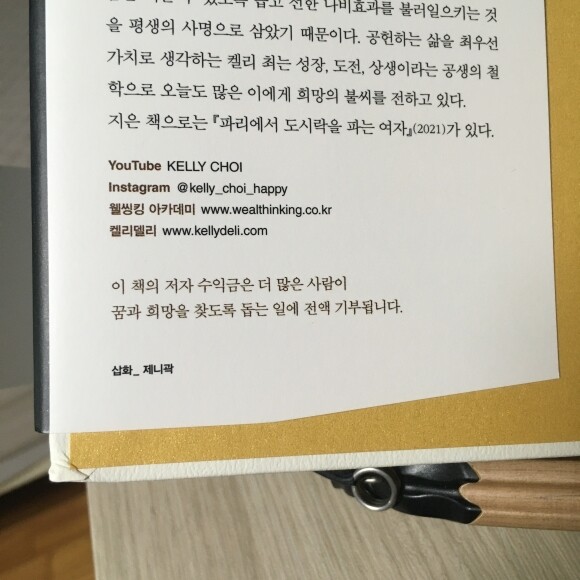 수 있도록 돕고 선한 나비효과를 불러일으키는 것
을 평생의 사명으로 삼았기 때문이다. 공헌하는 삶을 최우선
가치로 생각하는 켈리 최는 성장, 도전, 상생이라는 공생의 철
학으로 오늘도 많은 이에게 희망의 불씨를 전하고 있다.
지은 책으로는 『파리에서 도시락을 파는 여자』(2021)가 있다.
YouTube KELLY CHOI
Instagram @kelly_choi_happy
웰씽킹 아카데미 www.wealthinking.co.kr
켈리델리 www.kellydeli.com
이 책의 저자 수익금은 더 많은 사람이
꿈과 희망을 찾도록 돕는 일에 전액 기부됩니다.
삽화_ 제니곽